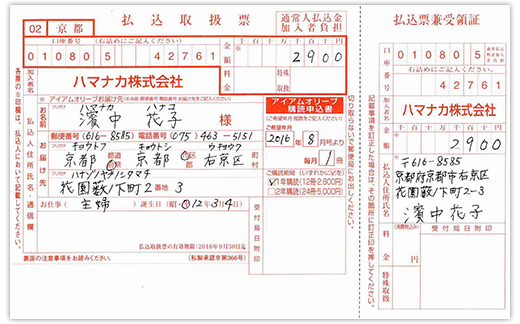 02 京都
払込取扱票
通常払込料金
加入者負担
口座番号 (右詰めにご記入ください)
01080 5 42761
金額 千百十万千百十円
2900
加入者名 ハマナカ株式会社
料金
特殊取扱
各票の※印欄は、払込人において記載してください。
払込人住所氏名・通信欄
アイアムオリーブお届け先
お届け先
ハマナカ ハナコ
濱中 花子 様
郵便番号(616-8585) 電話番号(075)463-5151
キョウトフ キョウトシ ウキョウク
京都 都道府県 京都 市 右京区 町村
ハナゾノヤブノシタマチ
花園藪ノ下町2 番地 3
お仕事( 主婦 ) 誕生日(昭 12年3月4日)
アイアムオリーブ
購読申込書
ご希望年月
2016年8月号より
毎月1冊
ご購読期間 (いずれかに✓を)
✓1年購読(12冊2,600円)
□2年購読(24冊5,000円)
受付局日附印
払込取扱票の有効期限:2016年9月30日迄
裏面の注意事項をお読みください。
(私製承認京第366号)
切り取らないで郵便局にお出しください。
記載事項を訂正した場合は、その箇所に訂正印を押してください。
払込票兼受領証
口座番号
01080 5
通常払込料金加入者負担
右詰めにご記入ください
42761
加入者名 ハマナカ株式会社
金額 千百十万千百十円
2900
払込人住所氏名
〒616-8585
京都府京都市右京区
花園藪ノ下町2-3
濱中花子
(消費税込み)
料金 円
特殊取扱
受付局日附印